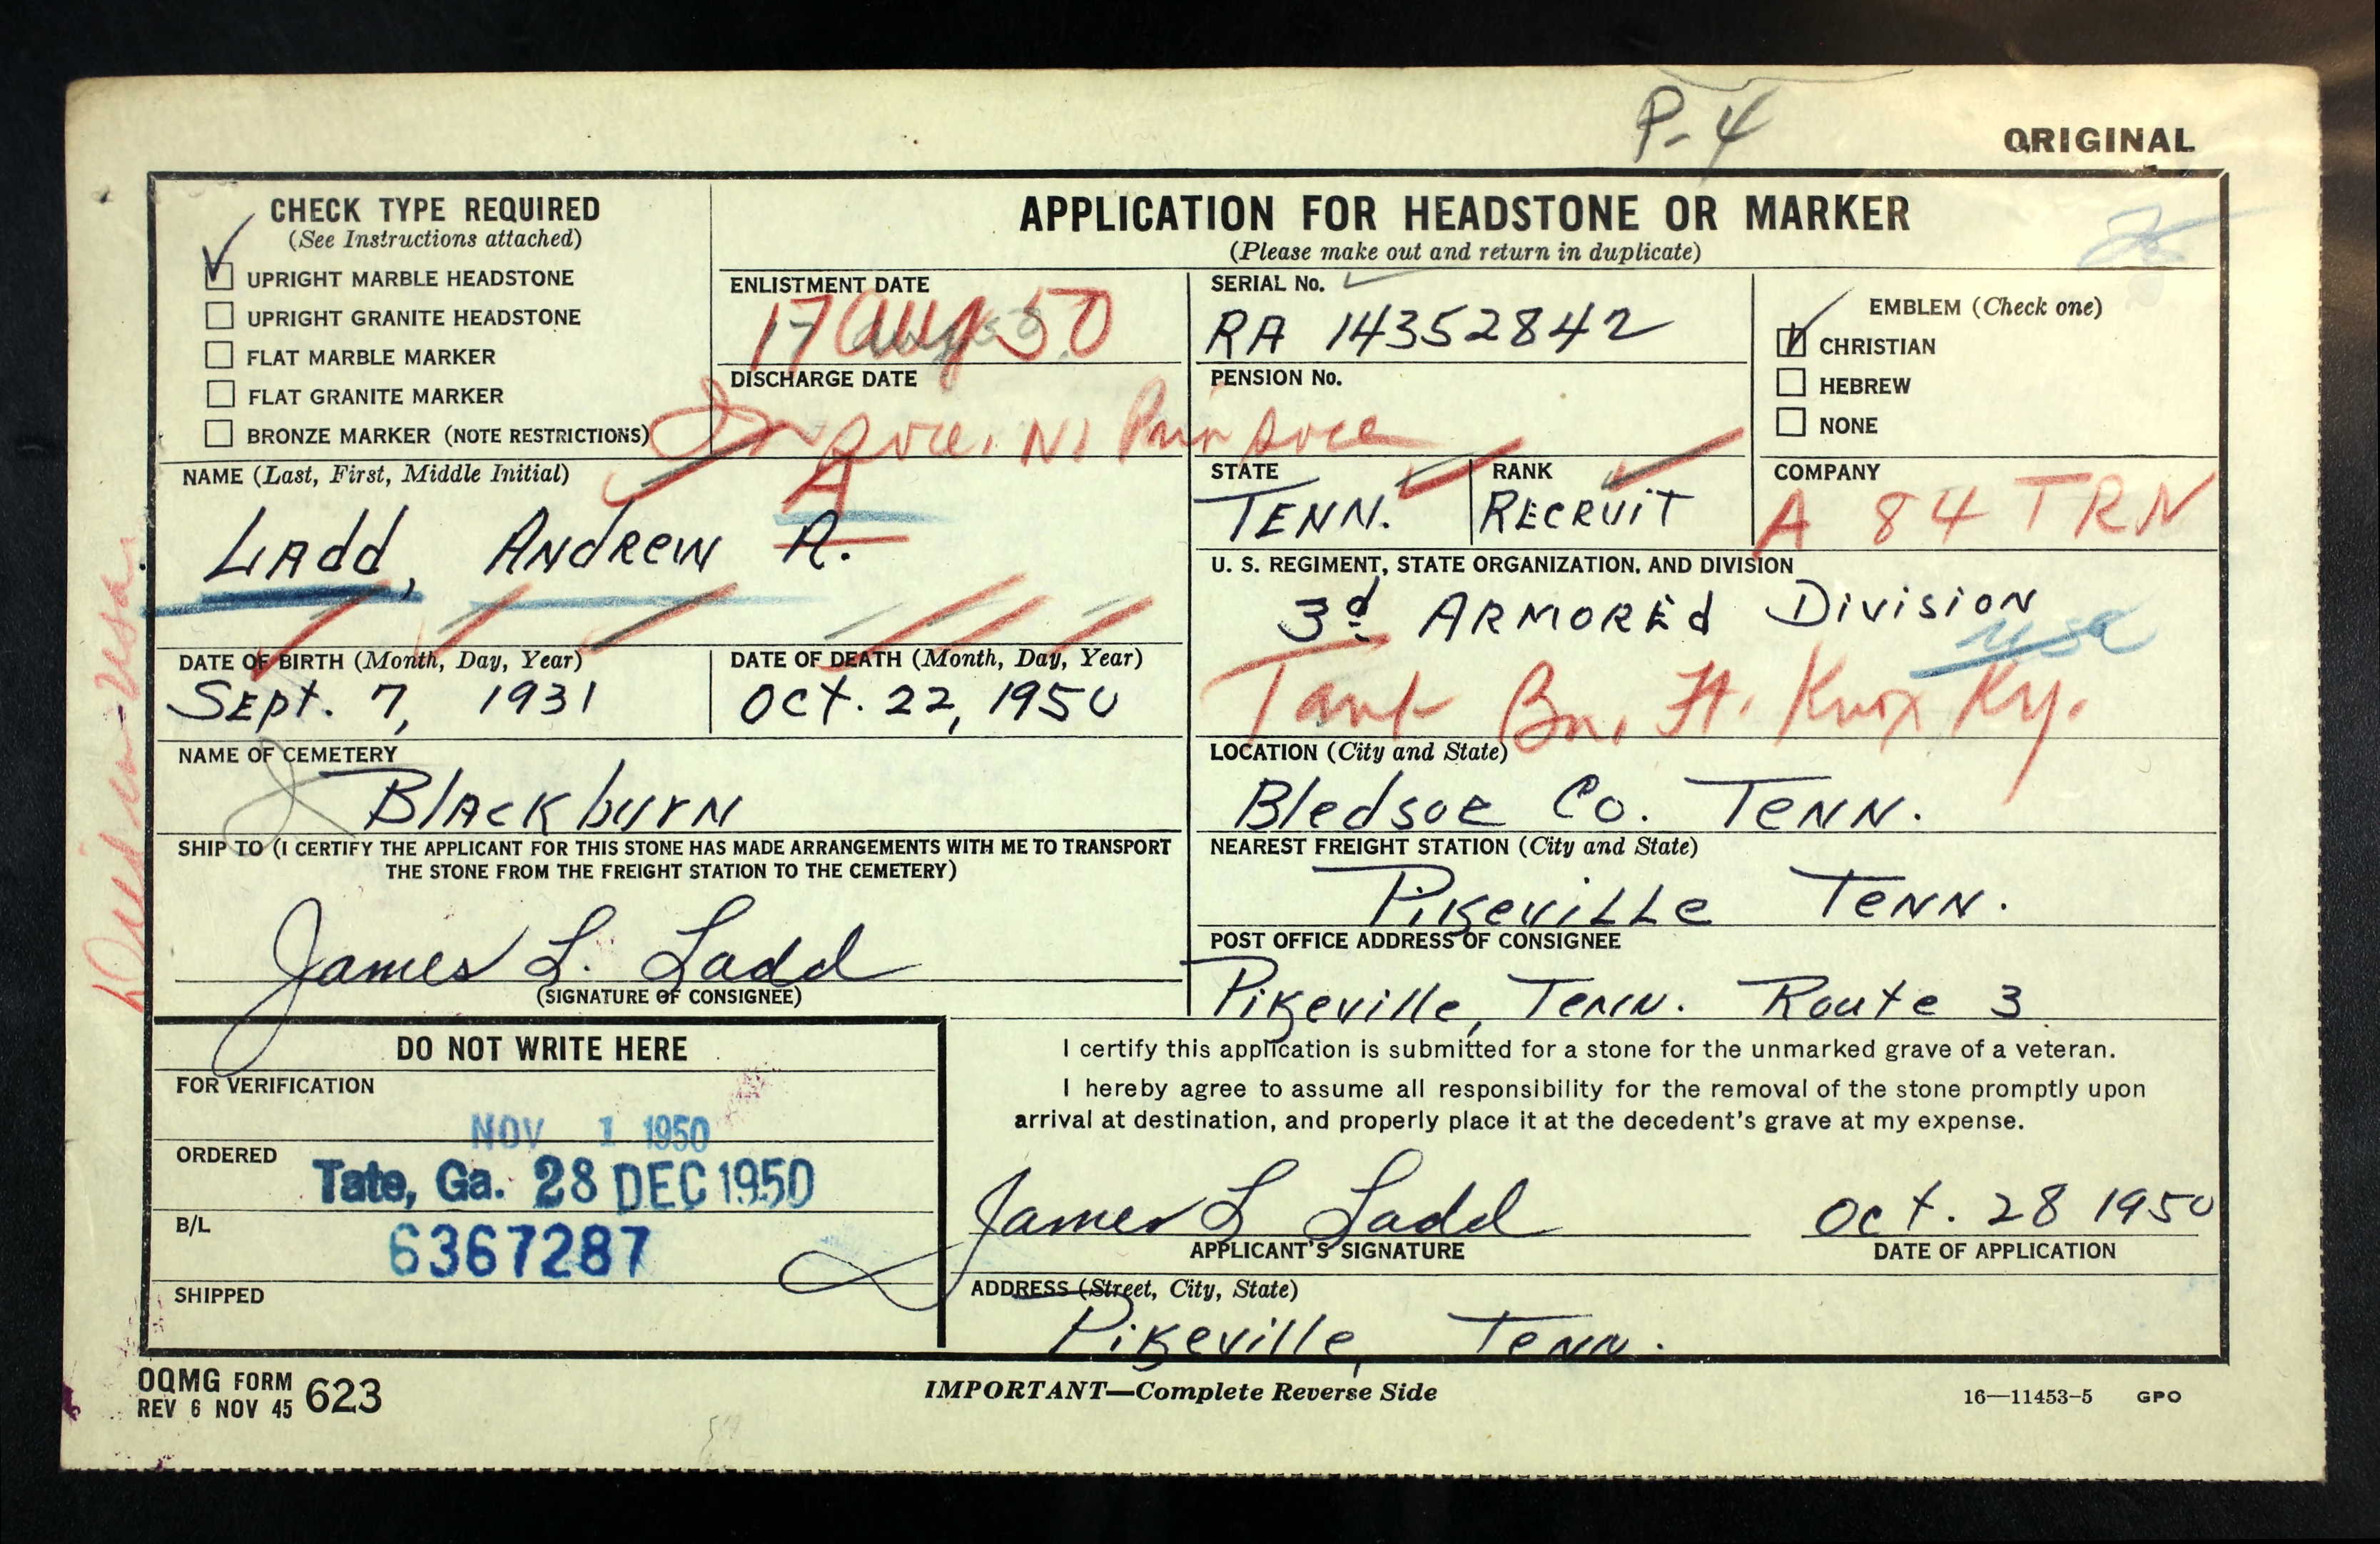 P-4
ORIGINAL
CHECK TYPE REQUIRED
(See Instructions attached)
UPRIGHT MARBLE HEADSTONE
UPRIGHT GRANITE HEADSTONE
FLAT MARBLE MARKER
FLAT GRANITE MARKER
BRONZE MARKER (NOTE RESTRICTIONS)
APPLICATION FOR HEADSTONE OR MARKER
(Please make out and return in duplicate)
ENLISTMENT DATE
17 Aug 50
DISCHARGE DATE
SERIAL No.
RA 14352842
PENSION No.
EMBLEM (Check one)
CHRISTIAN
HEBREW
NONE
NAME (Last, First, Middle Initial)
A
LAdd, ANdREW A.
STATE
TENN.
RANK
RECRUIT
COMPANY
A 84 TRN
U. S. REGIMENT, STATE ORGANIZATION, AND DIVISION
3d ARMOREd DIVISION
usa
Tank Bn, Ft. Knox Ky.
DATE OF BIRTH (Month, Day, Year)
SEpt. 7, 1931
DATE OF DEATH (Month, Day, Year)
Oct. 22, 1950
NAME OF CEMETERY
BlAckburN
LOCATION (City and State)
BledsoE Co. TENN.
SHIP TO (I CERTIFY THE APPLICANT FOR THIS STONE HAS MADE ARRANGEMENTS WITH ME TO TRANSPORT
THE STONE FROM THE FREIGHT STATION TO THE CEMETERY)
James L. Ladd
(SIGNATURE OF CONSIGNEE)
NEAREST FREIGHT STATION (City and State)
PikeviLLe TeNN.
POST OFFICE ADDRESS OF CONSIGNEE
Pikeville, Tenn. Route 3
DO NOT WRITE HERE
FOR VERIFICATION
NOV 1 1950
ORDERED
Tate, Ga. 28 DEC 1950
B/L
6367287
SHIPPED
I certify this application is submitted for a stone for the unmarked grave of a veteran.
I hereby agree to assume all responsibility for the removal of the stone promptly upon
arrival at destination, and properly place it at the decedent's grave at my expense.
James L Ladd
Oct. 28 1950
APPLICANT'S SIGNATURE
DATE OF APPLICATION
ADDRESS (Street, City, State)
Pikeville, Tenn.
OQMG FORM 623
REV 6 NOV 45
IMPORTANT—Complete Reverse Side
16—11453-5 GPO